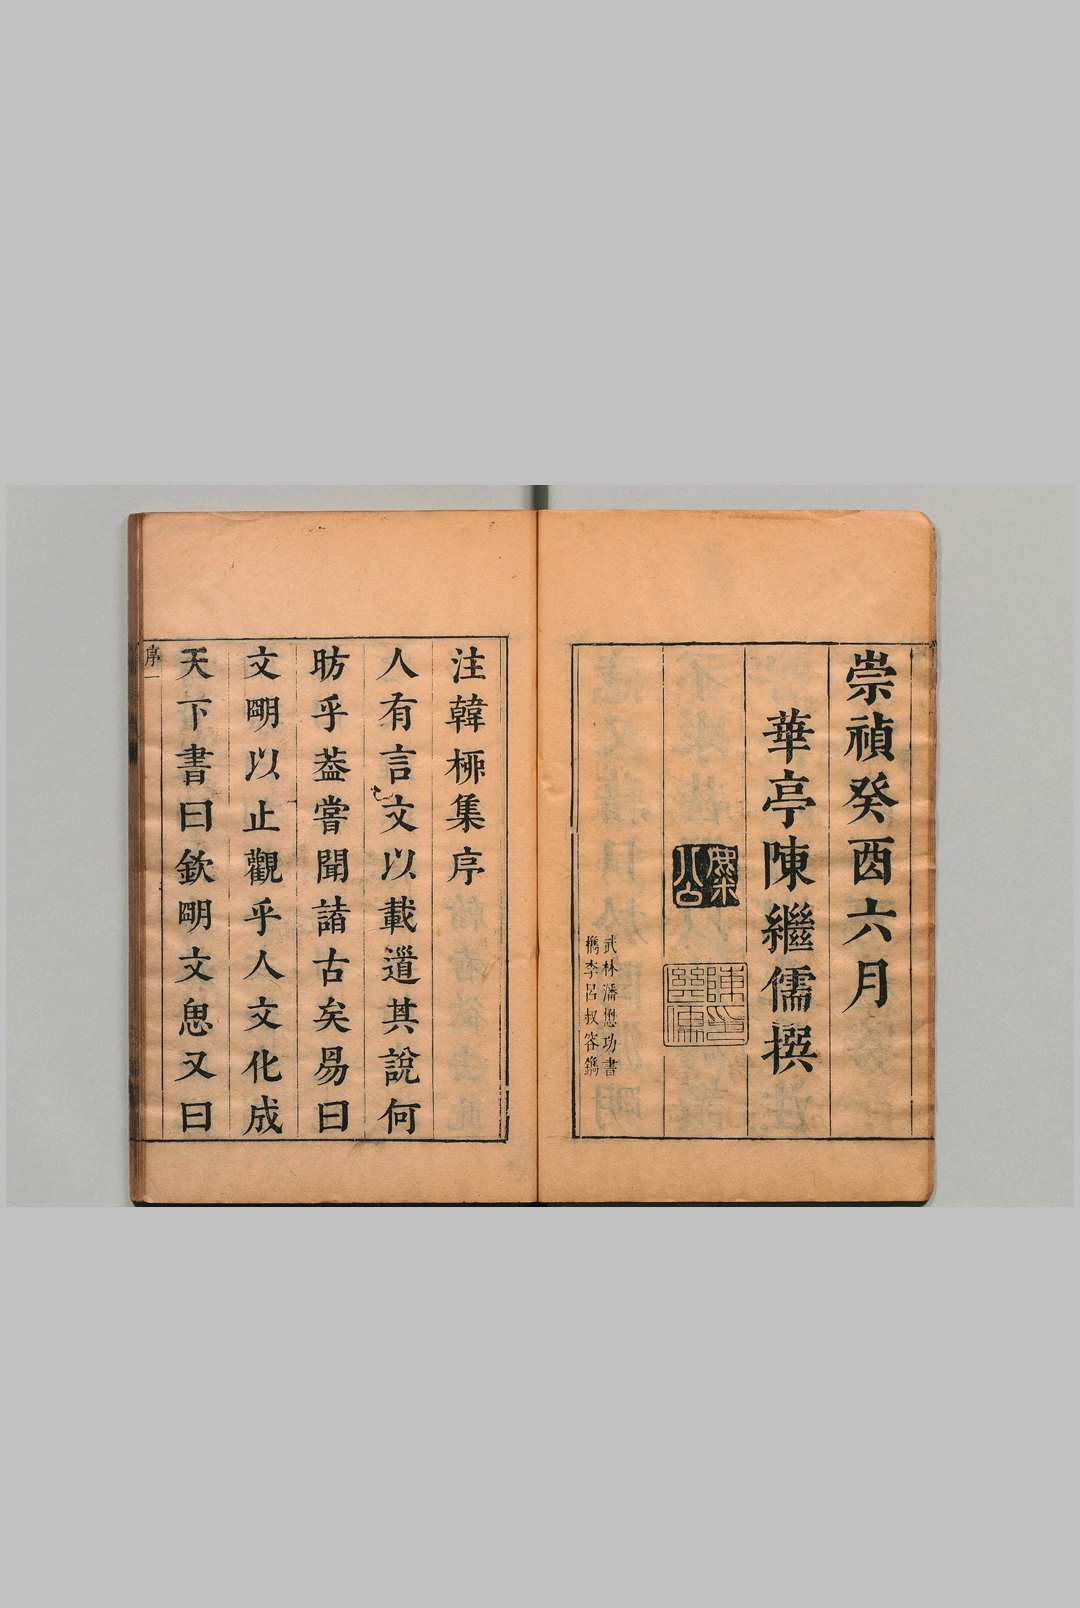 崇禎癸酉六月
華亭陳繼儒撰
麋公
陳印繼儒
武林潘懋功書
檇李呂叔容鐫
注韓桺集序
人有言文以載道其說何
昉乎葢嘗聞諸古矣易曰
文明以止觀乎人文化成
天下書曰欽明文思又曰
序
一